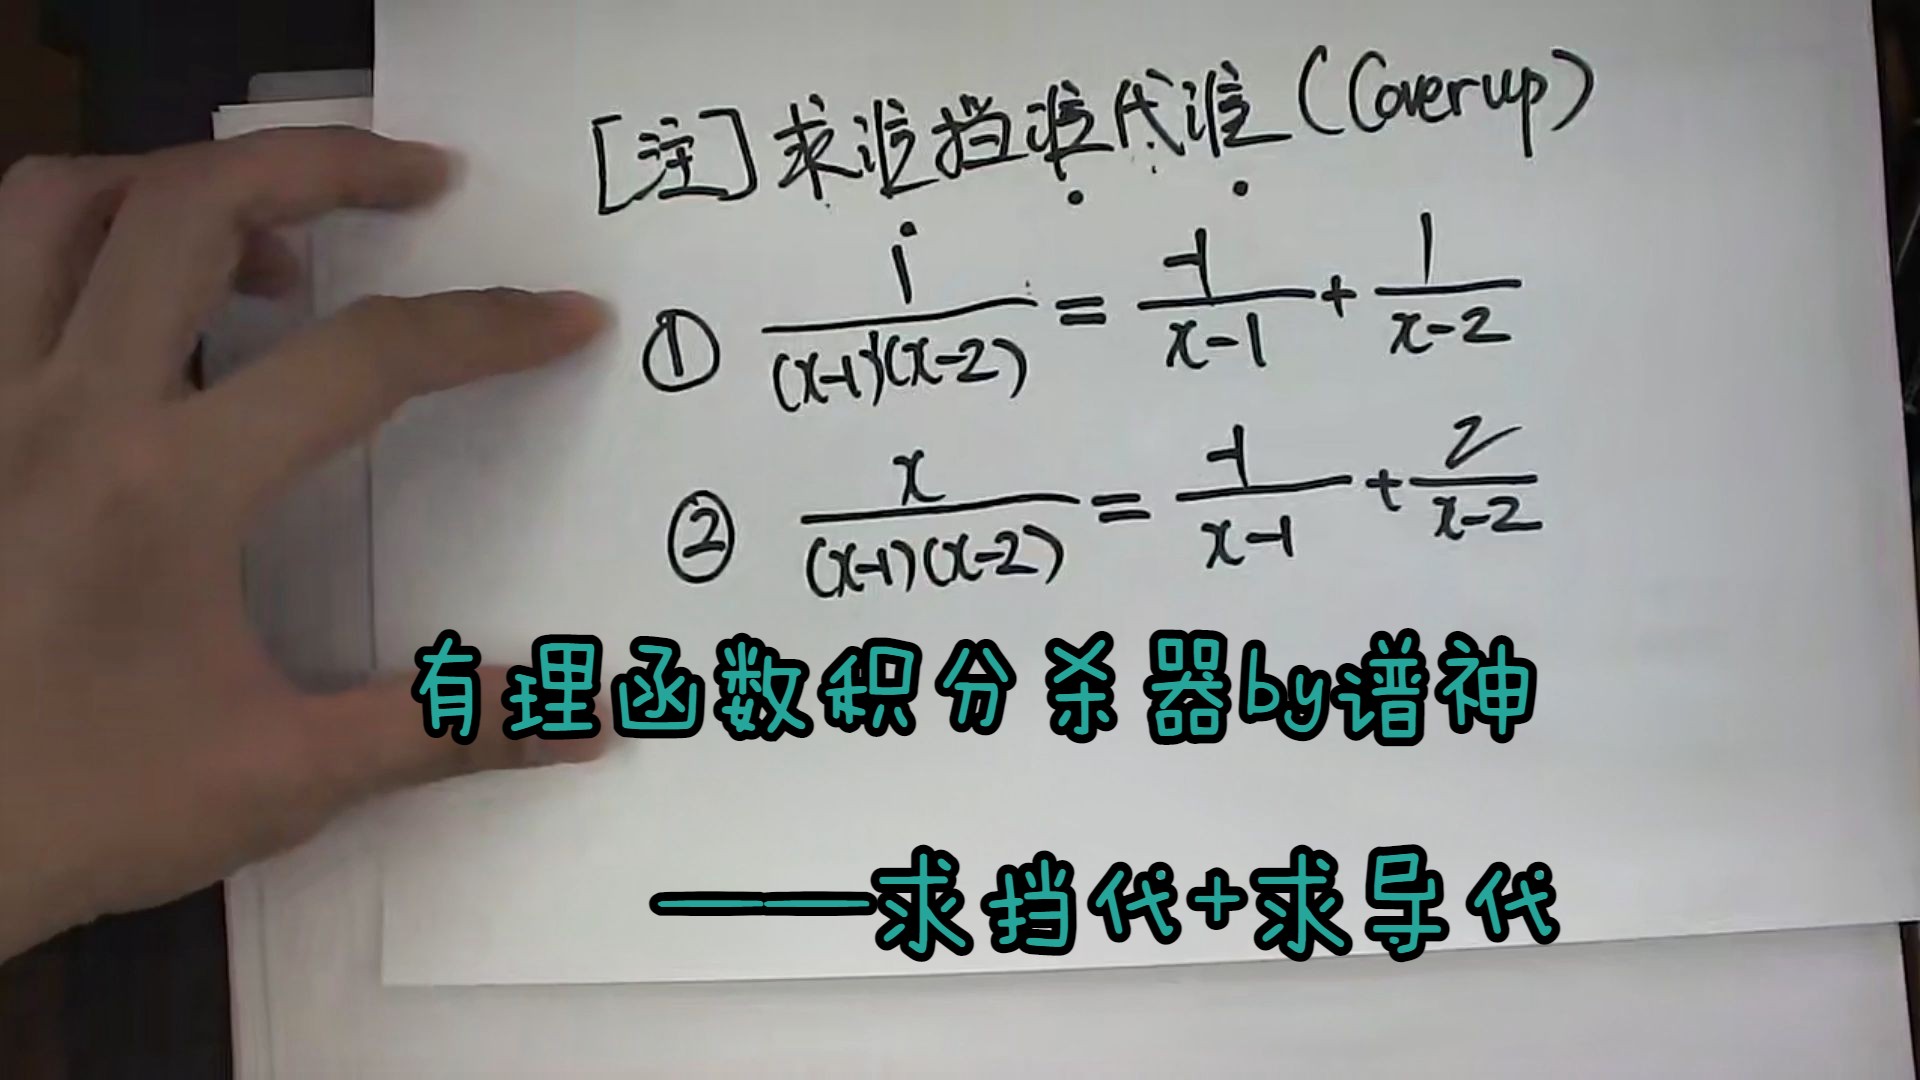 [注]求谁挡谁代谁(Cover up)
① 1/((x-1)(x-2)) = -1/(x-1) + 1/(x-2)
② x/((x-1)(x-2)) = -1/(x-1) + 2/(x-2)
有理函数积分杀器by谱神
——求挡代+求导代